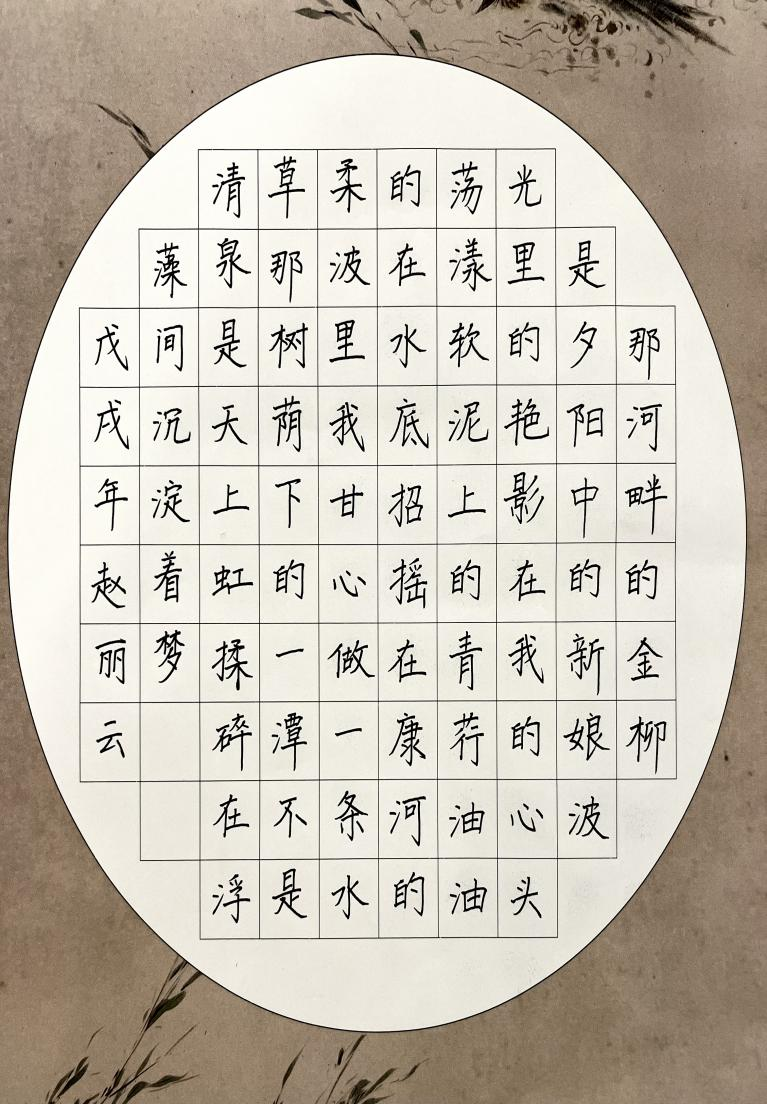 那河畔的金柳
是夕阳中的新娘波
光里的艳影在我的心头
荡漾软泥上的青荇油油
的在水底招摇在康河的
柔波里我甘心做一条水
草那树荫下的一潭不是
清泉是天上虹揉碎在浮
藻间沉淀着梦
戊戌年赵丽云